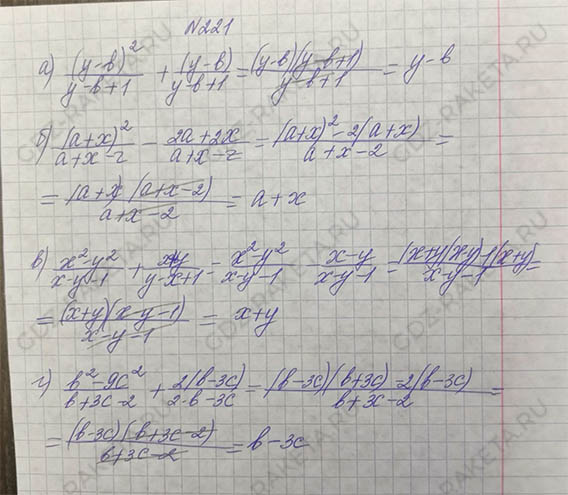 №221
а) (y-в)²/(y-в+1) + (y-в)/(y-в+1) = (y-в)(y-в+1)/(y-в+1) = y-в
б) (a+x)²/(a+x-2) - (2a+2x)/(a+x-2) = ((a+x)²-2(a+x))/(a+x-2) =
= (a+x)(a+x-2)/(a+x-2) = a+x
в) (x²-y²)/(x-y-1) + (x+y)/(y-x+1) = (x²-y²)/(x-y-1) - (x-y)/(x-y-1) = ((x+y)(x-y)-1(x+y))/(x-y-1) =
= (x+y)(x-y-1)/(x-y-1) = x+y
г) (в²-9c²)/(в+3c-2) + 2(в-3c)/(2-в-3c) = ((в-3c)(в+3c)-2(в-3c))/(в+3c-2) =
= (в-3c)(в+3c-2)/(в+3c-2) = в-3c
GDZ-RAKETA.RU